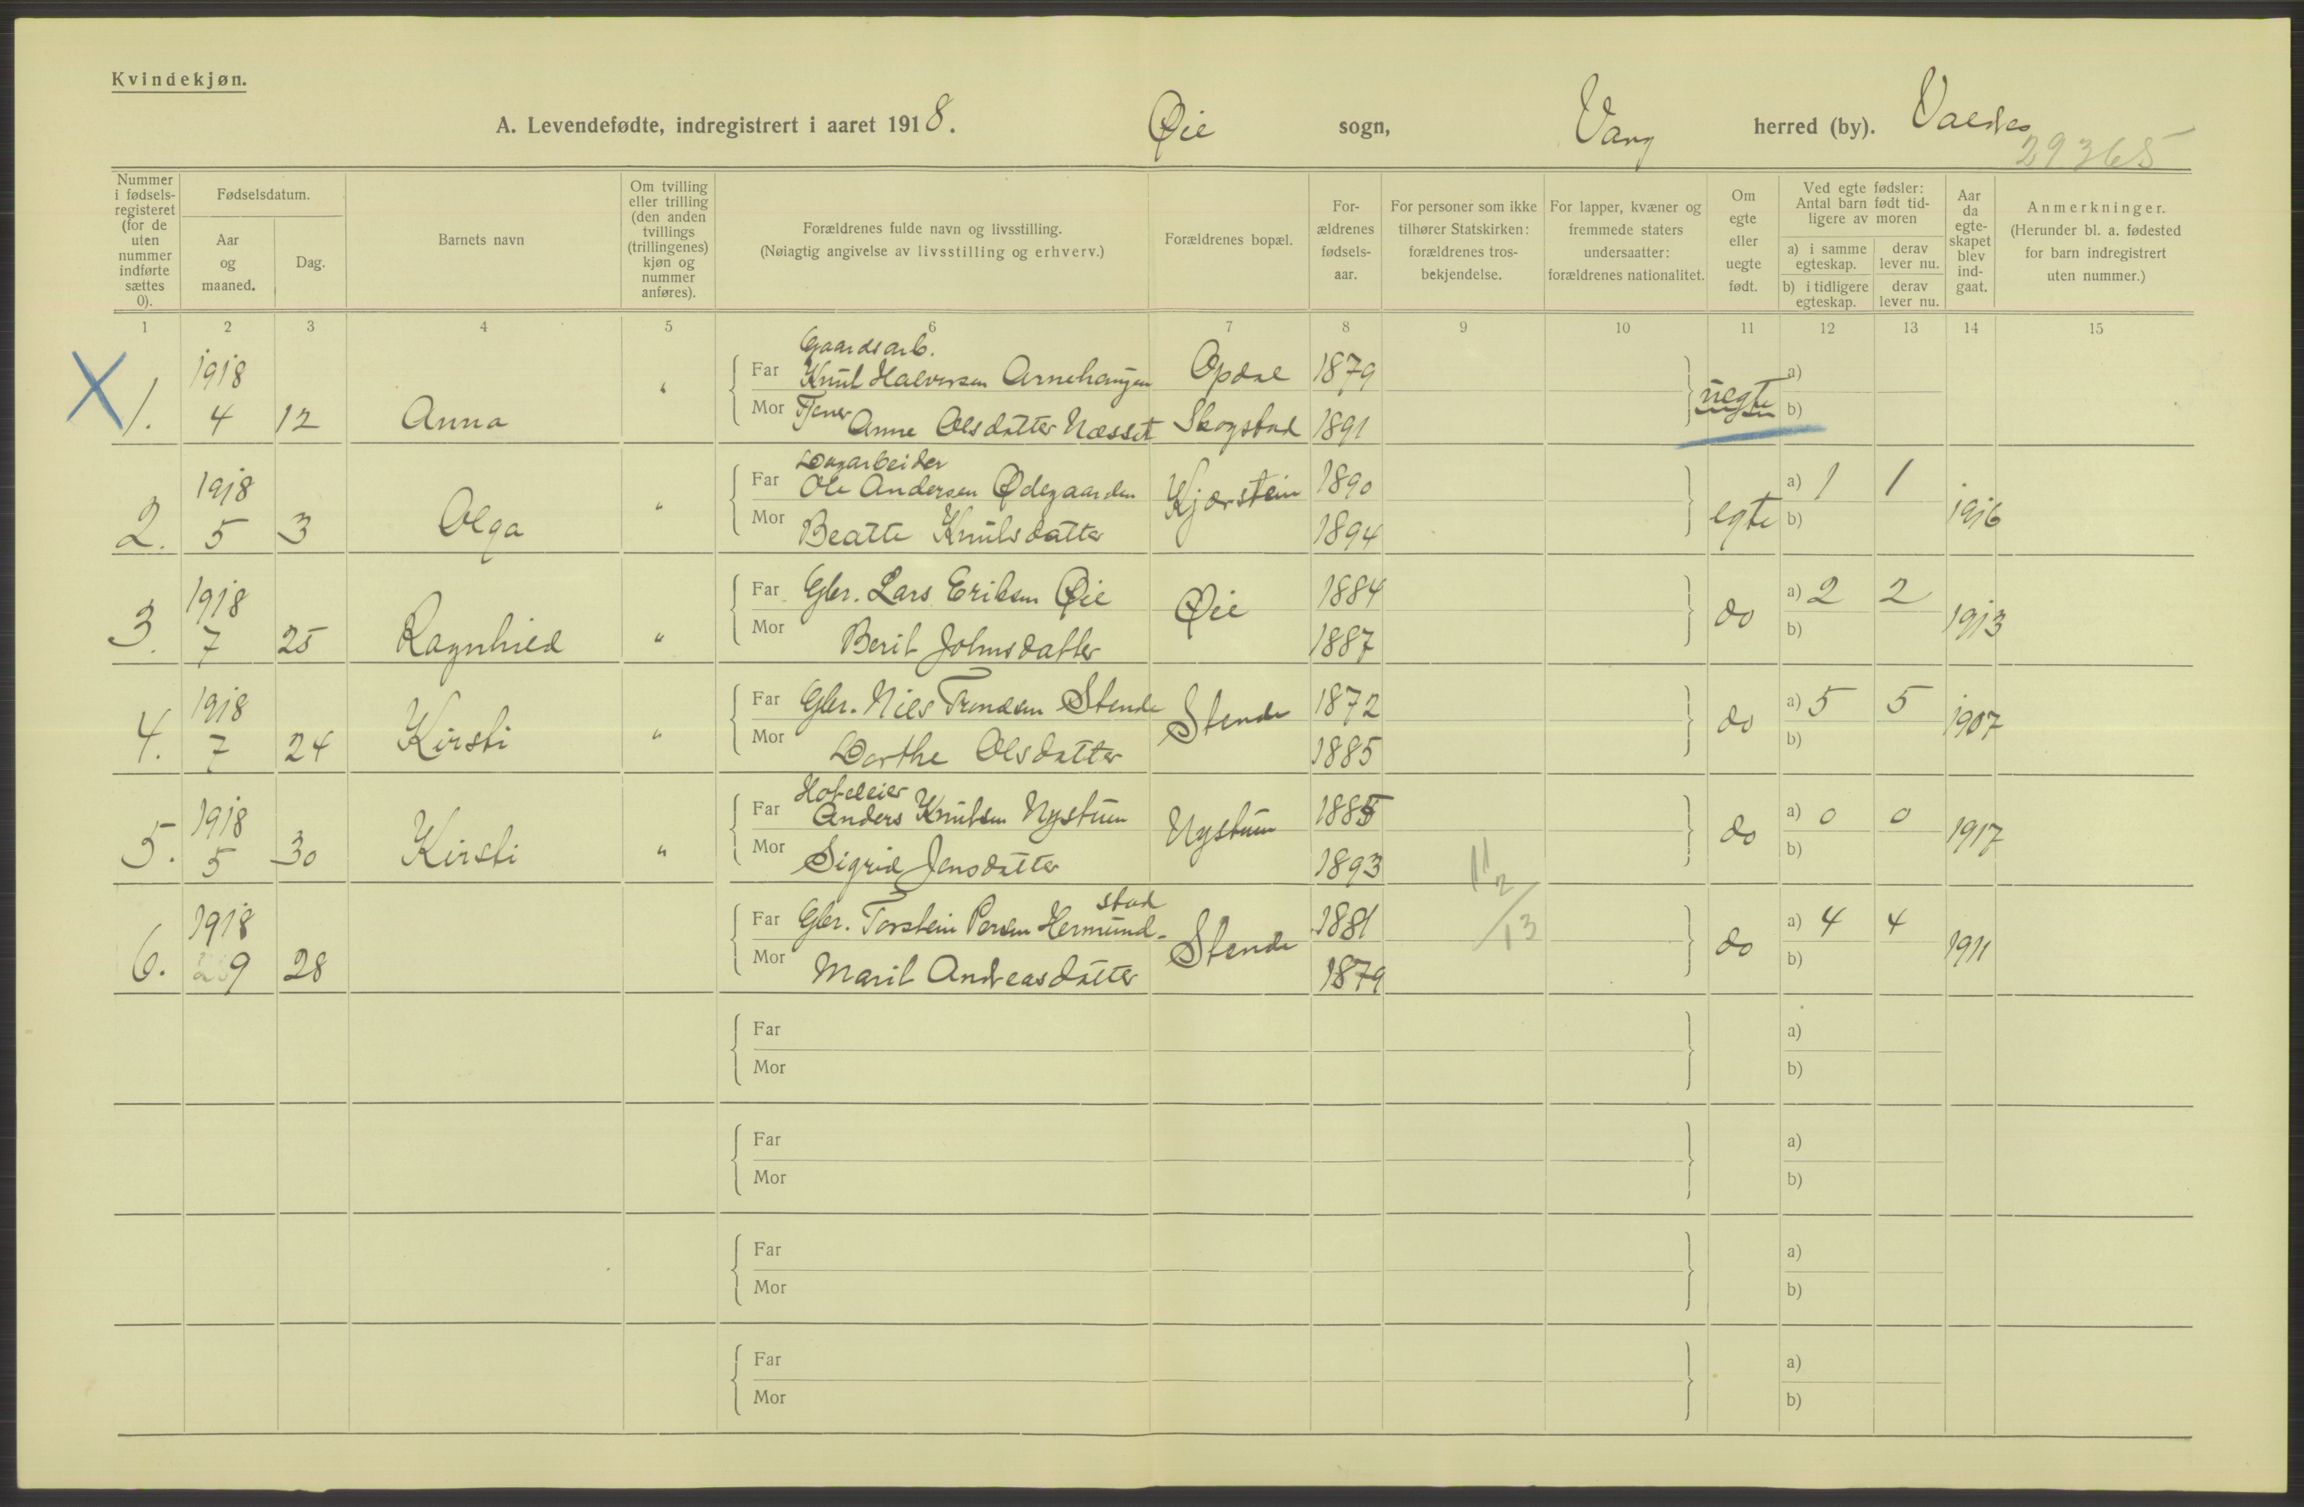 Kvindekjøn.
A. Levendefødte, indregistrert i aaret 1918. Øie sogn, Vang herred (by). Valdres
29365
Nummer i fødselsregisteret (for de uten nummer indførte sættes 0).
Fødselsdatum.
Aar og maaned.
Dag.
Barnets navn
Om tvilling eller trilling (den anden tvillings (trillingenes) kjøn og nummer anføres).
Forældrenes fulde navn og livsstilling.
(Nøiagtig angivelse av livsstilling og erhverv.)
Forældrenes bopæl.
Forældrenes fødselsaar.
For personer som ikke tilhører Statskirken: forældrenes trosbekjendelse.
For lapper, kvæner og fremmede staters undersaatter: forældrenes nationalitet.
Om egte eller uegte født.
Ved egte fødsler: Antal barn født tidligere av moren
a) i samme egteskap.
derav lever nu.
b) i tidligere egteskap.
derav lever nu.
Aar da egteskapet blev indgaat.
Anmerkninger.
(Herunder bl. a. fødested for barn indregistrert uten nummer.)
1 2 3 4 5 6 7 8 9 10 11 12 13 14 15
X 1. 1918 4 12 Anna "
Gaardsarb.
Far Knut Halvorsen Arnehaugen Opdal 1879
Mor Tjener Anne Olsdatter Næsset Skogstad 1891
uegte a) b)
2. 1918 5 3 Olga "
Dagarbeider
Far Ole Andersen Ødegaarden Kjørstein 1890
Mor Beatte Knutsdatter 1894
egte a) 1 1 b) 1916
3. 1918 7 25 Ragnhild "
Far Gbr. Lars Eriksen Øie Øie 1884
Mor Berit Johnsdatter 1887
do a) 2 2 b) 1913
4. 1918 7 24 Kirsti "
Far Gbr. Nils Trondsen Stende Stende 1872
Mor Dorthe Olsdatter 1885
do a) 5 5 b) 1907
5. 1918 5 30 Kirsti "
Hoteleier
Far Anders Knutsen Nystuen Nystuen 1885
Mor Sigrid Jensdatter 1893
do a) 0 0 b) 1917
11
2
/13
6. 1918 9 28
stad
Far Gbr. Torstein Persen Hermund- Stende 1881
Mor Marit Andreasdatter 1879
do a) 4 4 b) 1911
Far a)
Mor b)
Far a)
Mor b)
Far a)
Mor b)
Far a)
Mor b)